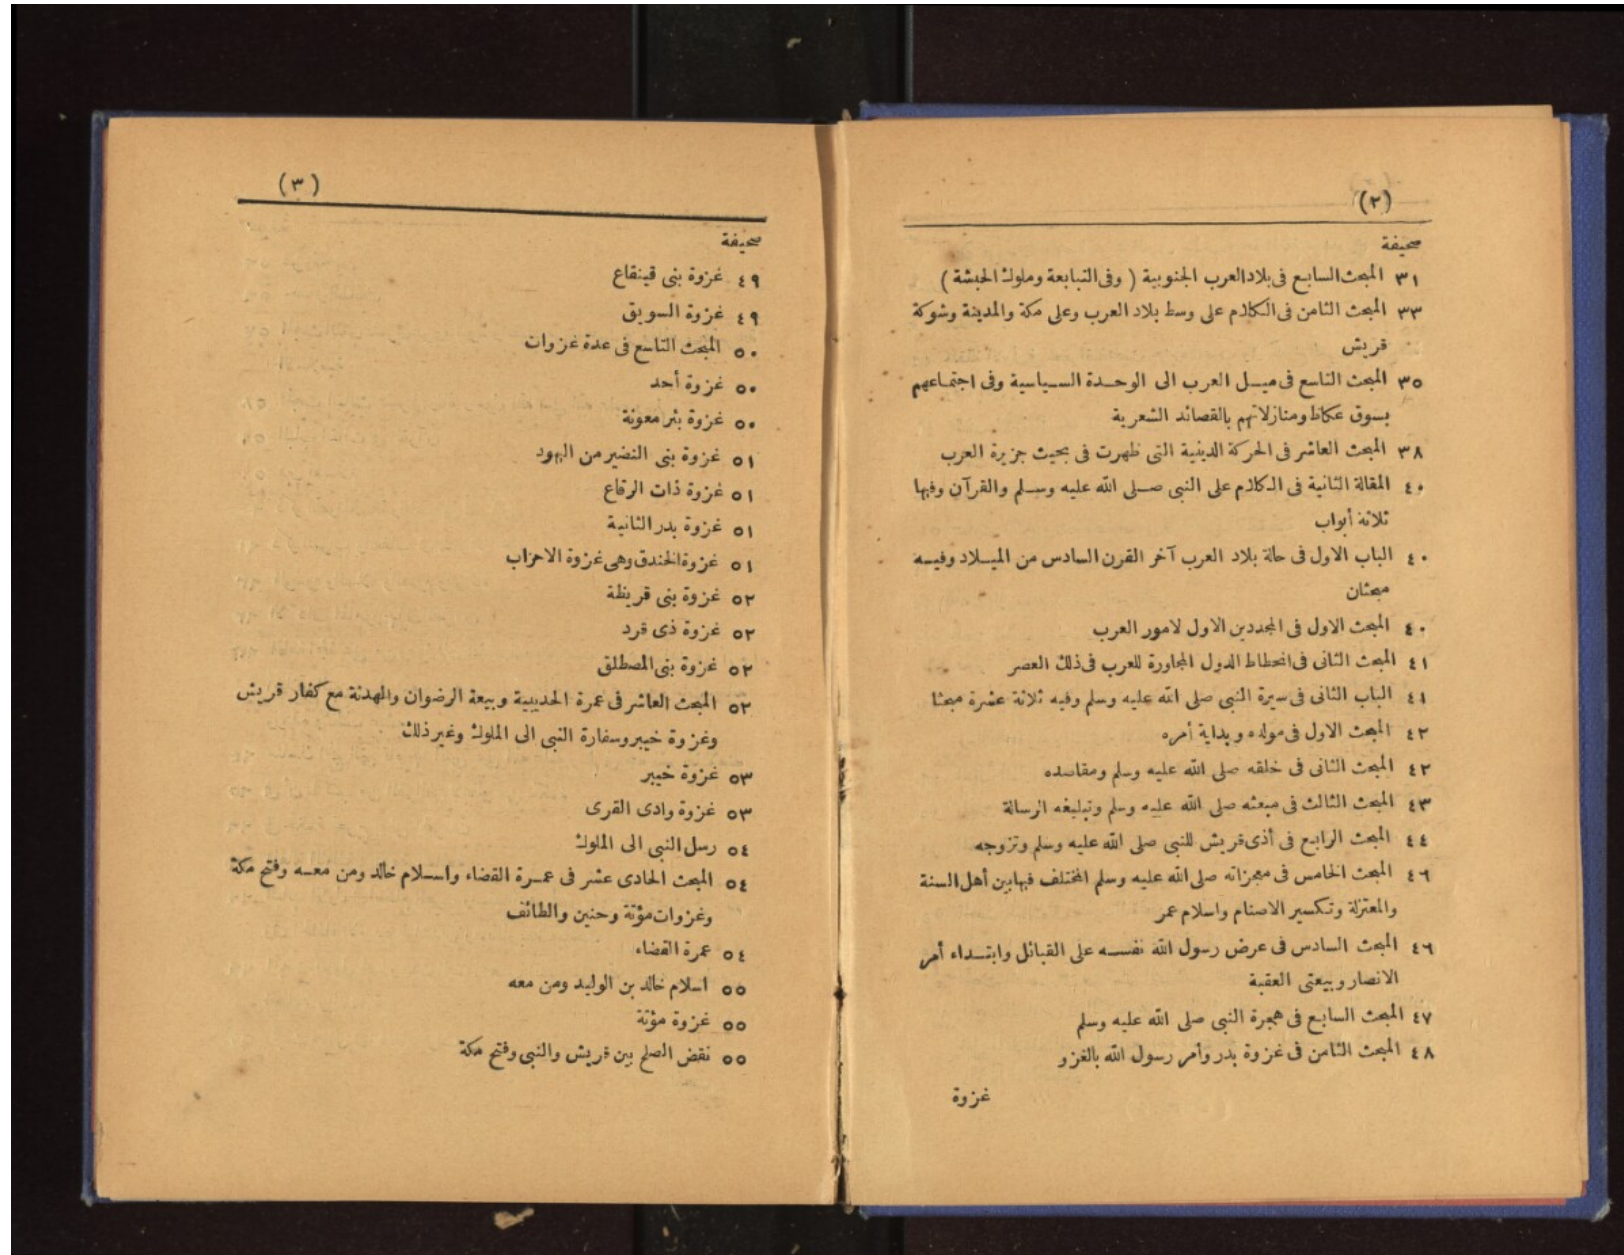 (٢)
صحيفة
٣١ المبحث السابع فى بلاد العرب الجنوبية ( وفى التبابعة وملوك الحبشة )
٣٣ المبحث الثامن فى الكلام على وسط بلاد العرب وعلى مكة والمدينة وشوكة
قريش
٣٥ المبحث التاسع فى ميل العرب الى الوحدة السياسية وفى اجتماعهم
بسوق عكاظ ومنازلاتهم بالقصائد الشعرية
٣٨ المبحث العاشر فى الحركة الدينية التى ظهرت فى بحيث جزيرة العرب
٤٠ المقالة الثانية فى الكلام على النبى صلى الله عليه وسلم والقرآن وفيها
ثلاثة أبواب
٤٠ الباب الاول فى حالة بلاد العرب آخر القرن السادس من الميلاد وفيه
مبحثان
٤٠ المبحث الاول فى المجددين الاول لامور العرب
٤١ المبحث الثانى فى انحطاط الدول المجاورة للعرب فى ذلك العصر
٤١ الباب الثانى فى سيرة النبى صلى الله عليه وسلم وفيه ثلاثة عشرة مبحثا
٤٢ المبحث الاول فى مولده وبداية أمره
٤٢ المبحث الثانى فى خلقه صلى الله عليه وسلم ومقاصده
٤٣ المبحث الثالث فى مبعثه صلى الله عليه وسلم وتبليغه الرسالة
٤٤ المبحث الرابع فى أذى قريش للنبى صلى الله عليه وسلم وتزوجه
٤٦ المبحث الخامس فى معجزاته صلى الله عليه وسلم المختلف فيها بين أهل السنة
والمعتزلة وتكسير الاصنام واسلام عمر
٤٦ المبحث السادس فى عرض رسول الله نفسه على القبائل وابتداء أمر
الانصار وبيعتى العقبة
٤٧ المبحث السابع فى هجرة النبى صلى الله عليه وسلم
٤٨ المبحث الثامن فى غزوة بدر وأمر رسول الله بالغزو
غزوة
(٣)
صحيفة
٤٩ غزوة بنى قينقاع
٤٩ غزوة السويق
٥٠ المبحث التاسع فى عدة غزوات
٥٠ غزوة أحد
٥٠ غزوة بئر معونة
٥١ غزوة بنى النضير من اليهود
٥١ غزوة ذات الرقاع
٥١ غزوة بدر الثانية
٥١ غزوة الخندق وهى غزوة الاحزاب
٥٢ غزوة بنى قريظة
٥٢ غزوة ذى قرد
٥٢ غزوة بنى المصطلق
٥٢ المبحث العاشر فى عمرة الحديبية وبيعة الرضوان والهدنة مع كفار قريش
وغزوة خيبر وسفارة النبى الى الملوك وغير ذلك
٥٣ غزوة خيبر
٥٣ غزوة وادى القرى
٥٤ رسل النبى الى الملوك
٥٤ المبحث الحادى عشر فى عمرة القضاء واسلام خالد ومن معه وفتح مكة
وغزوات مؤتة وحنين والطائف
٥٤ عمرة القضاء
٥٥ اسلام خالد بن الوليد ومن معه
٥٥ غزوة مؤتة
٥٥ نقض الصلح بين قريش والنبى وفتح مكة